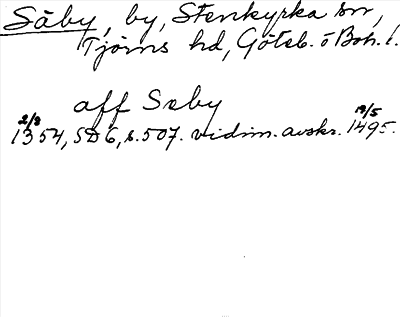 Säby, by, Stenkyrka sn,
Tjörns hd, Göteb. o Boh. l.
aff Sæby
2/3 1354, SD 6, s. 507. vidim. avskr. 19/5 1495.